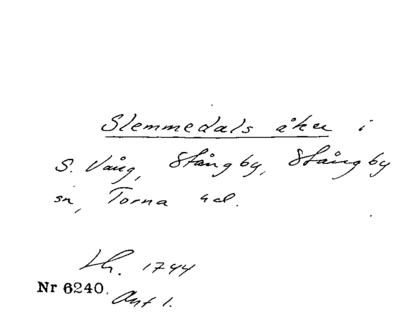 Slemmedals åker i
S. Vång, Stångby, Stångby
sn, Torna hd.
Lh. 1744
Nr 6240. Akt 1.